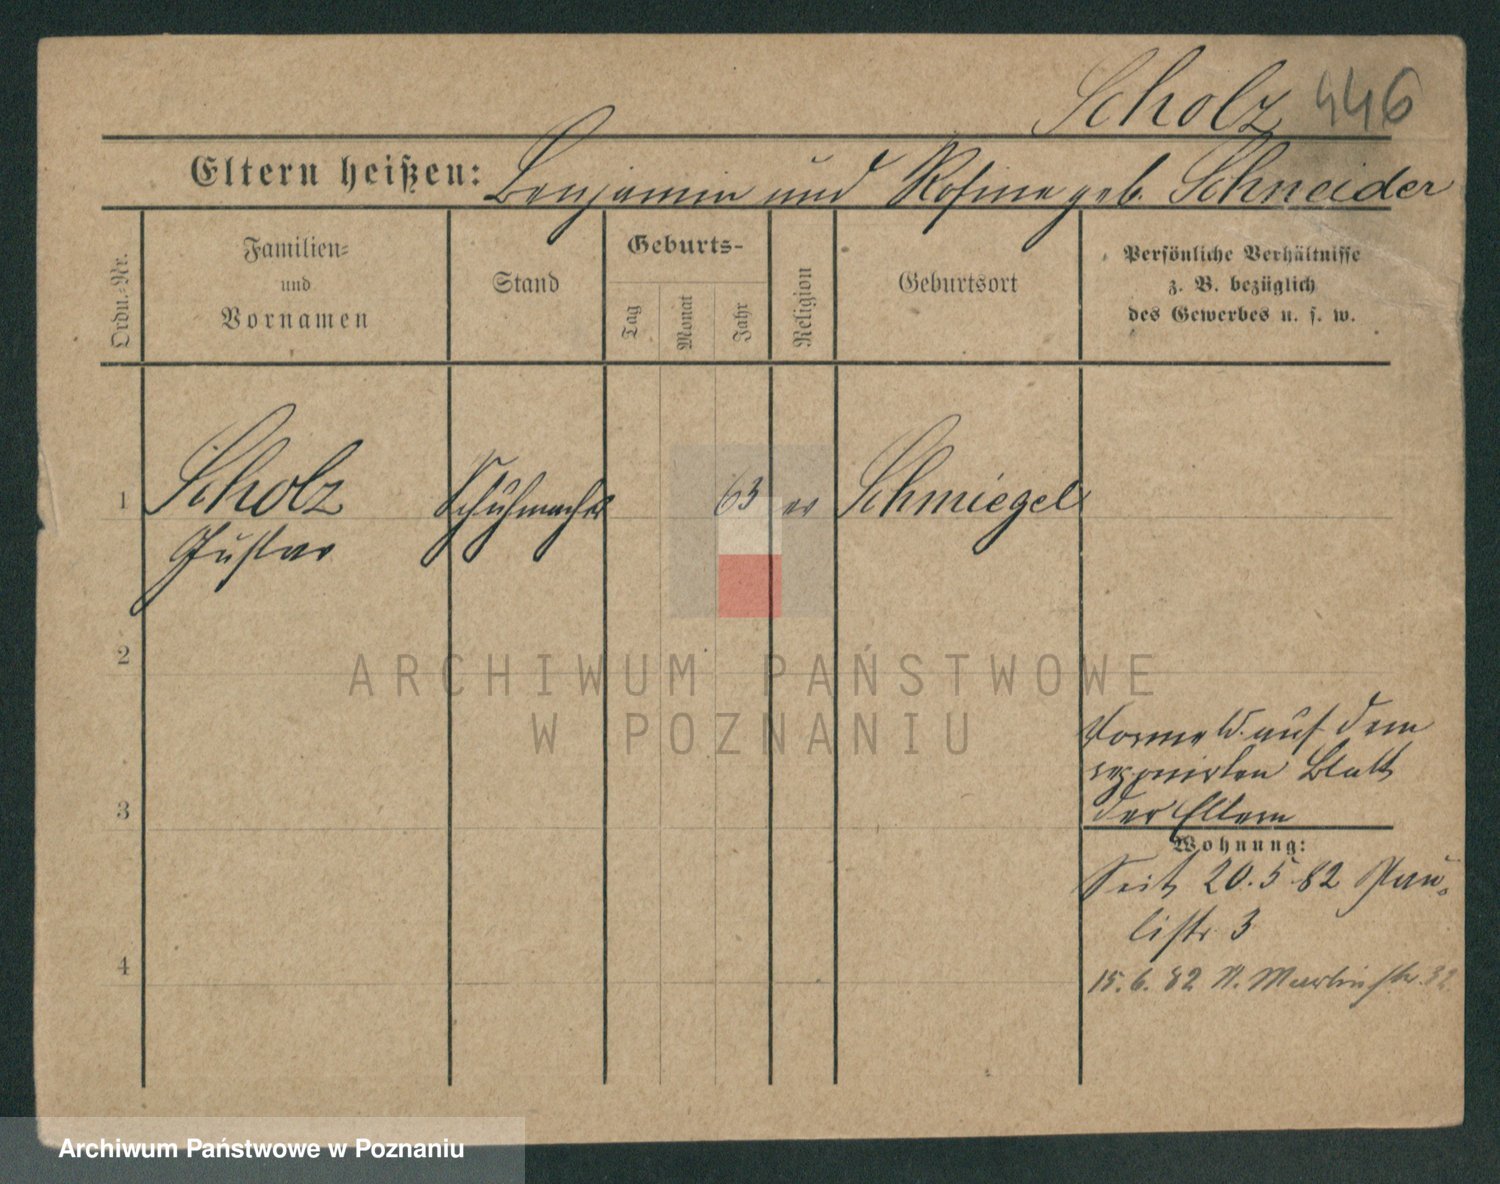 Scholz 446
Eltern heißen: Benjamin und Rosine geb. Schneider
Ordn.-Nr.
Familien- und Vornamen
Stand
Geburts-
Tag
Monat
Jahr
Religion
Geburtsort
Persönliche Verhältnisse
z. B. bezüglich
des Gewerbes u. s. w.
1 Scholz Schuhmacher 63 ev Schmiegel
Gustav
2
ARCHIWUM PAŃSTWOWE
W POZNANIU
auf dem
Blatt
3 der Eltern
Wohnung:
Seit 20.5.82 Pau-
listr 3
4 15.6.82 St. Martinstr. 32
Archiwum Państwowe w Poznaniu